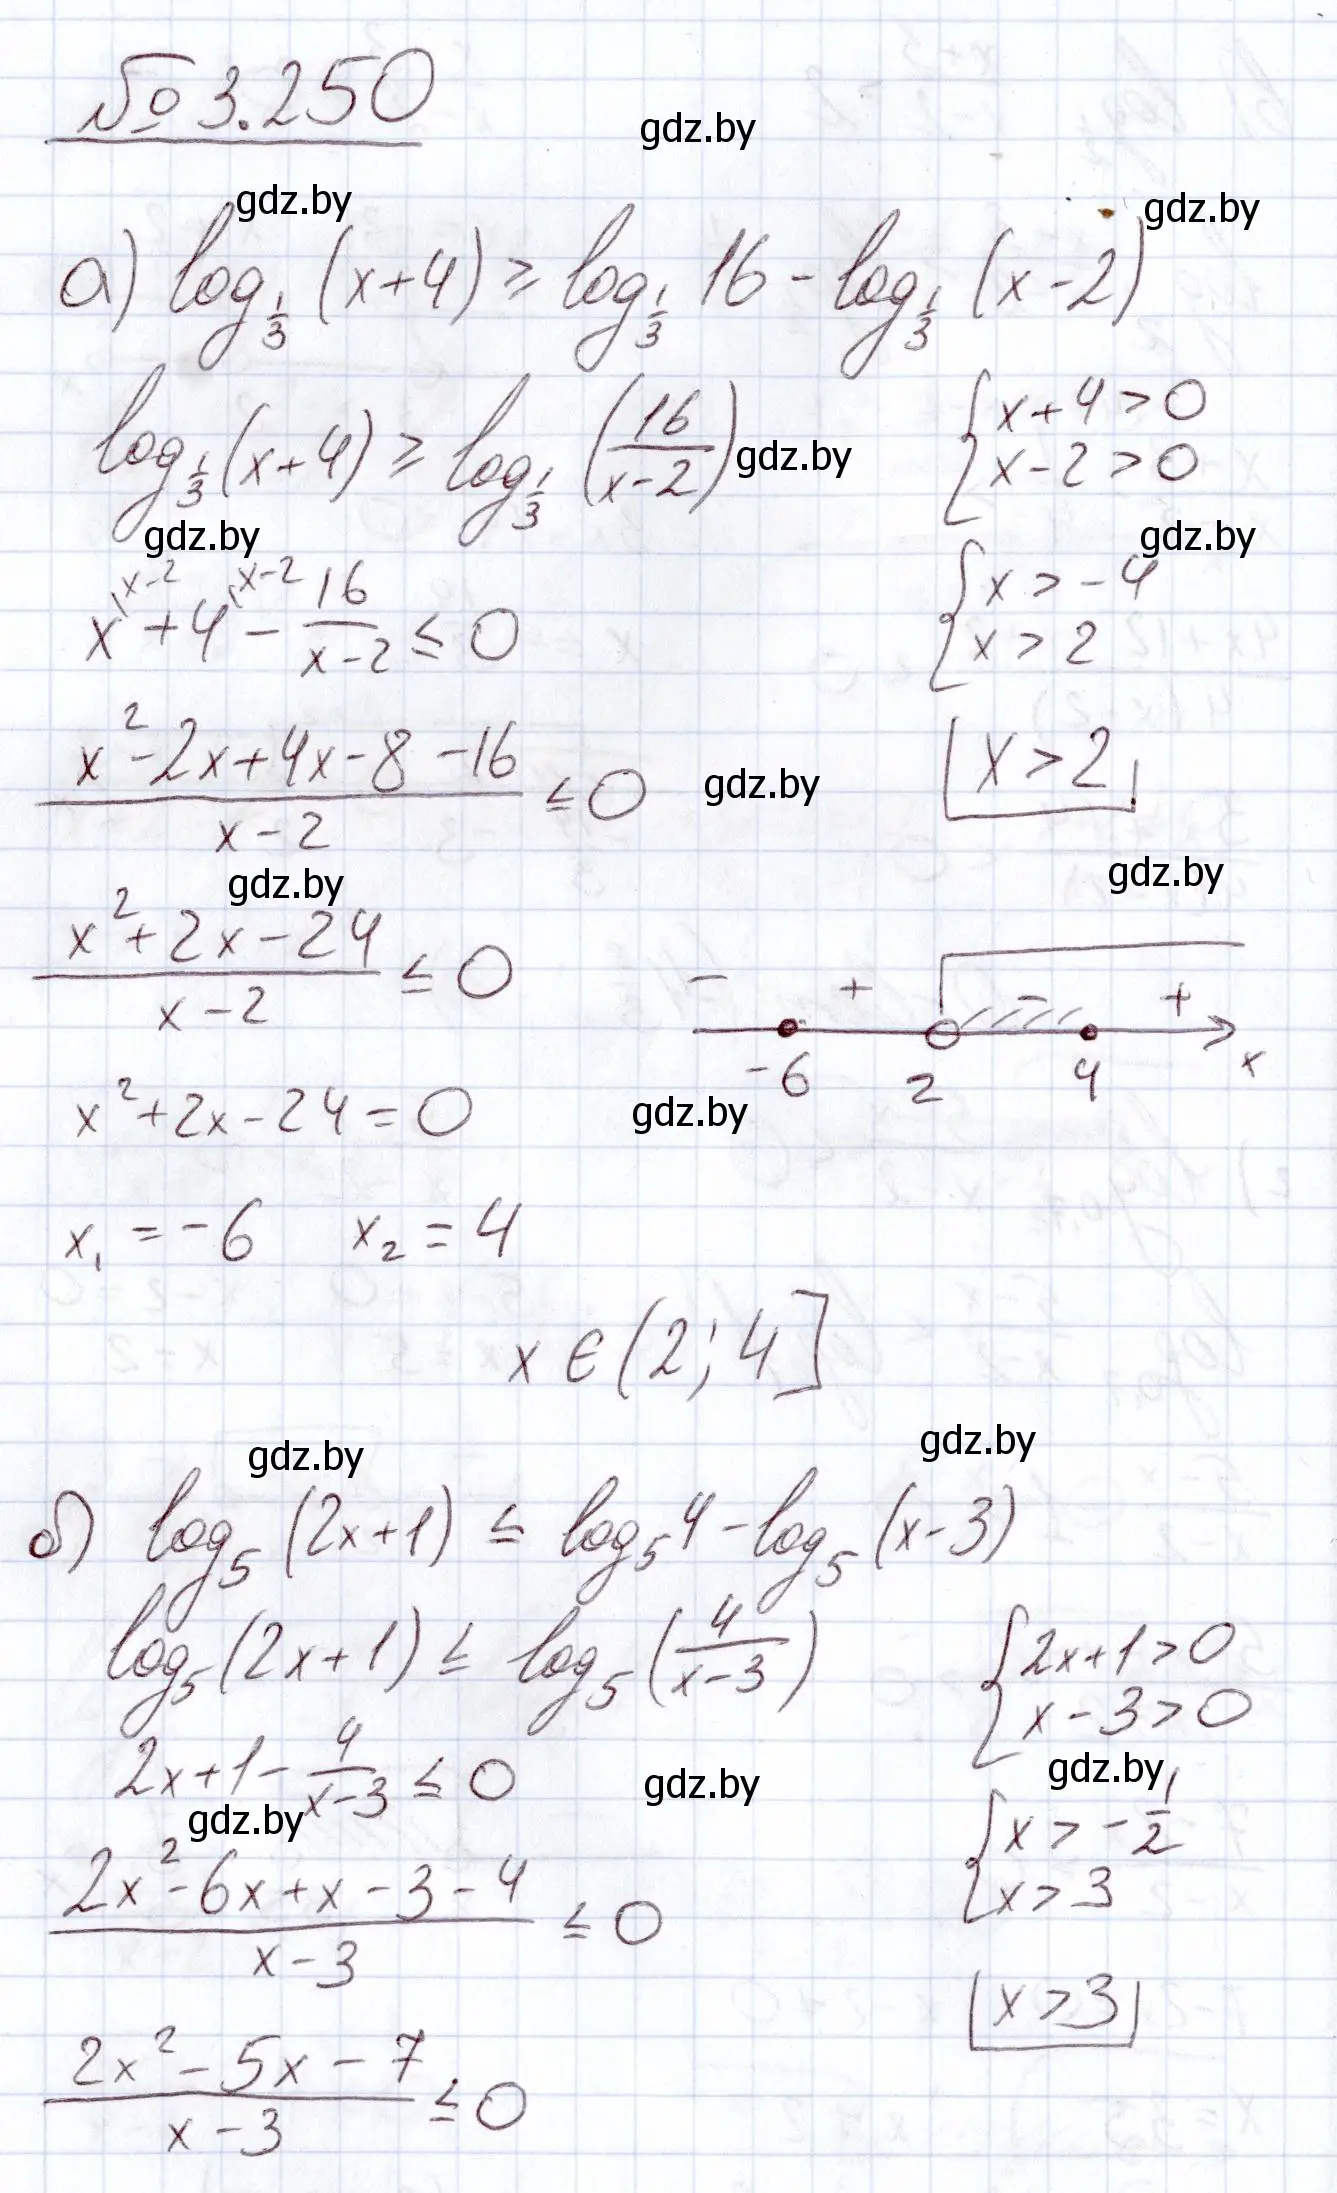 № 3.250
gdz.by
gdz.by
gdz.by
а) log_{1/3} (x+4) ≥ log_{1/3} 16 - log_{1/3} (x-2)
log_{1/3} (x+4) ≥ log_{1/3} (16/(x-2))
gdz.by
{ x+4 > 0
x-2 > 0
gdz.by
gdz.by
x^{\x-2} + 4^{\x-2} - 16/(x-2) ≤ 0
{ x > -4
x > 2
(x² - 2x + 4x - 8 - 16)/(x-2) ≤ 0
gdz.by
x > 2
gdz.by
gdz.by
(x² + 2x - 24)/(x-2) ≤ 0
- + - +
-6 2 4 x
x² + 2x - 24 = 0
gdz.by
x₁ = -6 x₂ = 4
x ∈ (2; 4]
gdz.by
gdz.by
б) log₅ (2x+1) ≤ log₅ 4 - log₅ (x-3)
log₅ (2x+1) ≤ log₅ (4/(x-3))
{ 2x+1 > 0
x-3 > 0
2x+1 - 4/(x-3) ≤ 0
gdz.by
gdz.by
gdz.by
{ x > -1/2
x > 3
(2x² - 6x + x - 3 - 4)/(x-3) ≤ 0
x > 3
(2x² - 5x - 7)/(x-3) ≤ 0